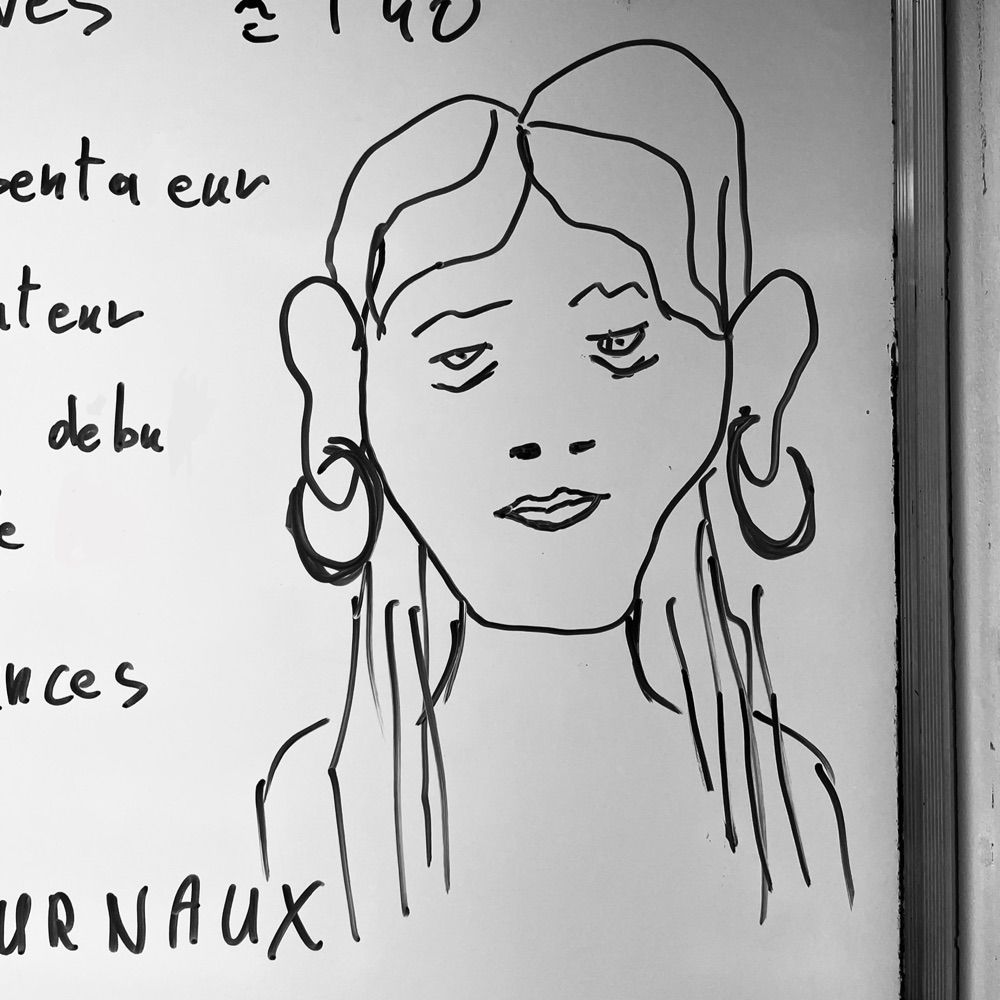 ves ≈ 140
pentaeur
ateur
debu
e
nces
URNAUX